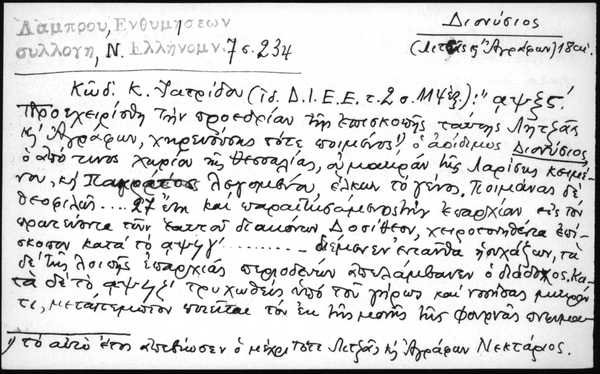 Λάμπρου, Ἐνθυμήσεων
συλλογή, Ν. Ἑλληνομν. 7 σ. 234
Διονύσιος
(Λιτζᾶς κ᾽ Ἀγράφων) 18 αἰ.
Κώδ. Κ. Ἰατρίδου (ἰδ. Δ.Ι.Ε.Ε. τ. 2 σ. ): "αψξς΄
Προεχειρίσθη τὴν προεδρίαν τῆς ἐπισκοπῆς ταύτης Λητζᾶς
κ᾽ Ἀγράφων, χηρευούσης τότε ποιμένος¹⁾, ὁ ἀοίδιμος Διονύσιος
ὁ ἀπό τινος χωρίου τῆς Θεσσαλίας, οὐ μακρὰν τῆς Λαρίσης κειμέ-
νου, κ᾽ λεγομένου, ἕλκων τὸ γένος. Ποιμάνας δὲ
θεοφιλῶς .... 27 ἔτη καὶ παραιτησάμενος τὴν ἐπαρχίαν εἰς τὸν
πρωτεύοντα τῶν ἑαυτοῦ διακόνων Δοσίθεον, χειροτονηθέντα ἐπί-
σκοπον κατὰ τὸ αψϟγ΄ ......... διέμεινεν ἐνταῦθα ἡσυχάζων, τὰ
δὲ τῆς λοιπῆς ἐπαρχίας περιοδεύων ἀπελάμβανεν ὁ διάδοχος. Κα-
τὰ δὲ τὸ τρυχωθεὶς ὑπὸ τοῦ γήρως καὶ νοσήσας μικρόν
τι, μετάπεμπτον ποιεῖται τὸν ἐκ τῆς μονῆς τῆς Φουρνᾶς πνευμα-
¹⁾ τὸ αὐτὸ ἔτος ἀπεβίωσεν ὁ μέχρι τότε Λιτζᾶς κ᾽ Ἀγράφων Νεκτάριος.